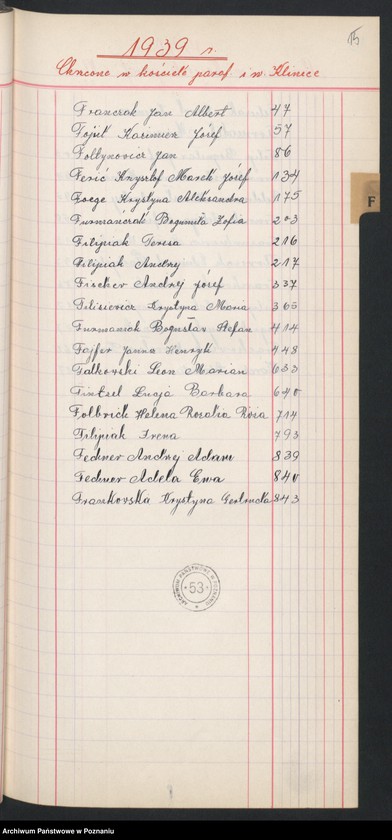 15
1939 r.
Chrzcone w kościele paraf. i w Klinice
Franczak Jan Albert 47
Fojut Kazimierz Józef 57
Foltynowicz Jan 86
Ferić Krzysztof Marek Józef 134
Foege Krystyna Aleksandra 175
Furmańczak Bogumiła Zofia 203
F
Filipiak Teresa 216
Filipiak Andrzej 217
Fischer Andrzej Józef 337
Filisiewicz Krystyna Maria 365
Furmaniak Bogusław Stefan 414
Fajfer Janusz Henryk 448
Falkowski Leon Marian 633
Fintzel Łucja Barbara 640
Folbrich Helena Rozalia Róża 714
Filipiak Irena 793
Fechner Andrzej Adam 839
Fechner Adela Ewa 840
Frankowska Krystyna Gertruda 843
ARCHIWUM PAŃSTWOWE W POZNANIU
53
Archiwum Państwowe w Poznaniu